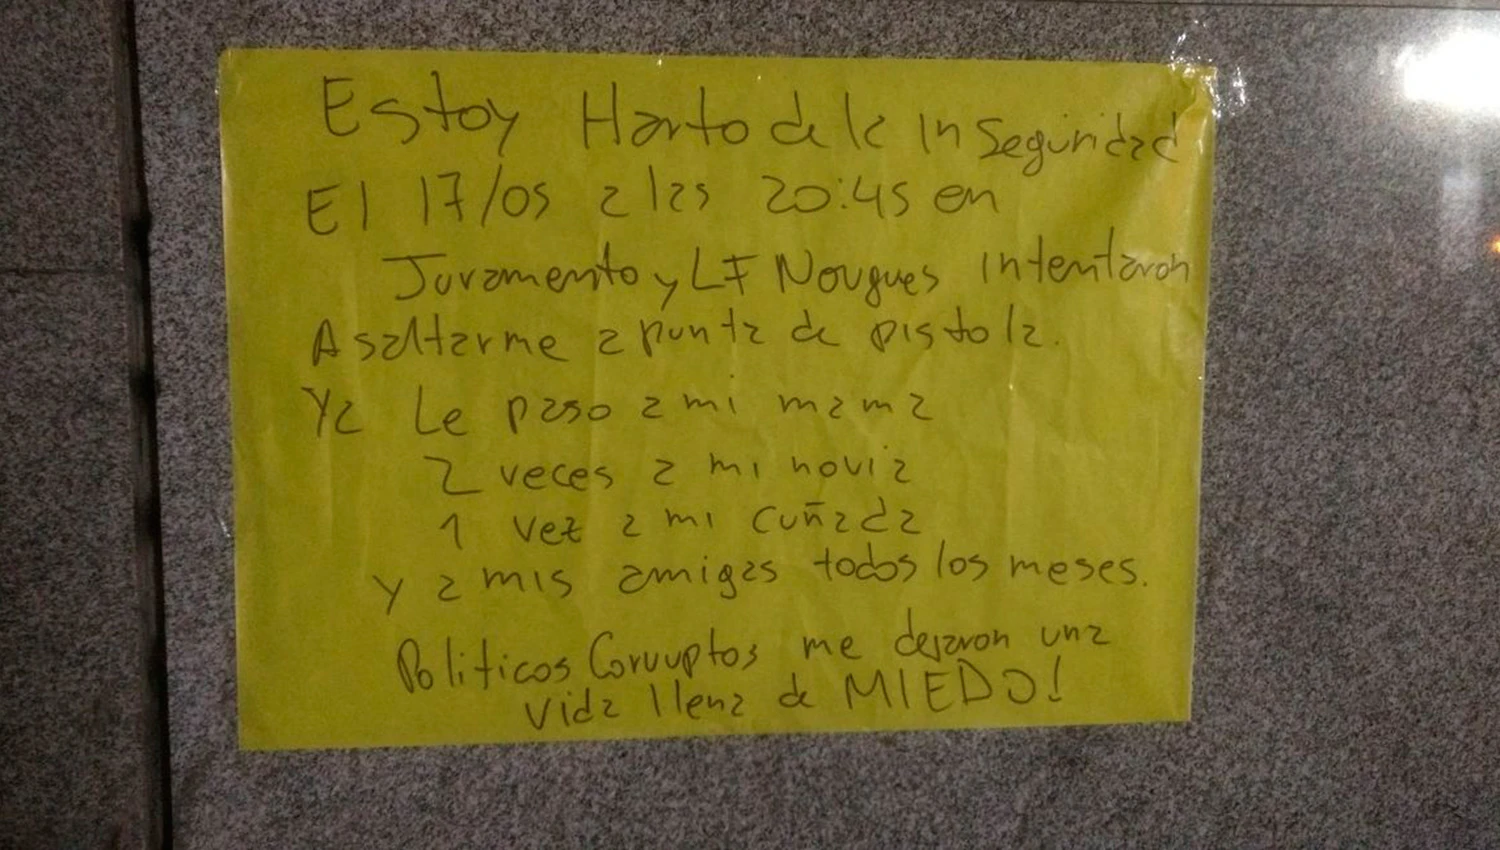 Estoy Harto de la inseguridad
El 17/05 a las 20:45 en
Juramento y LF Nougues intentaron
Asaltarme a punta de pistola.
Ya Le paso a mi mama
2 veces a mi novia
1 vez a mi cuñada
y a mis amigas todos los meses.
Politicos Corruptos me dejaron una
vida llena de MIEDO!